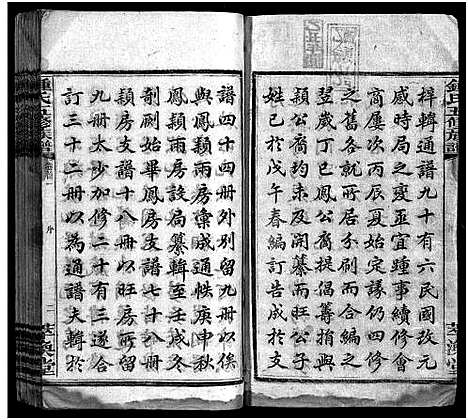 鍾氏五修族譜
梓輯通譜九十有六民國改元
感時局之變更宜踵事續修會
商屢次丙辰夏始定議仍循分
之舊各就所居分刷而合成
翌歲丁巳鳳公裔提倡籌捐與
公裔約未及開纂而旺公子
姓已於戊午春編訂告成於支
譜四十四冊外別留九冊以俟
與鳳穎兩房彙成通帙庚申秋
鳳穎兩房設局纂輯至壬戌冬
剞劂始畢鳳公裔修
穎房支譜七十八冊以旺房
九冊太少加修二十三遂合
訂三十二冊以為通譜夫輯
鍾氏五修族譜
序
二